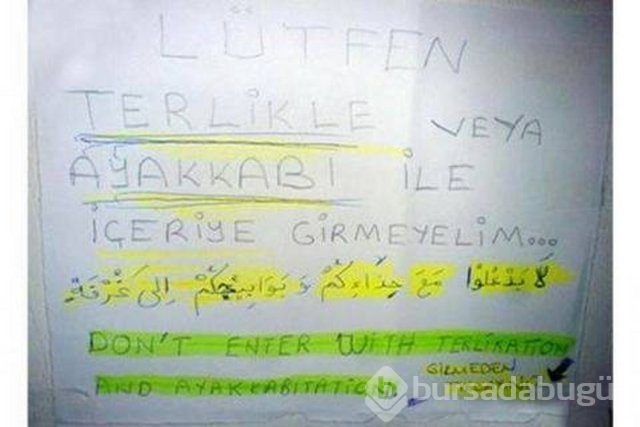 LÜTFEN
TERLİKLE VEYA
AYAKKABI İLE
İÇERİYE GİRMEYELİM...
لَا يَدْخُلُوا مَعَ حِذَاءِكُمْ وَ بَوَابِيجِكُمْ اِلَى غُرْفَةٍ
DON'T ENTER WITH TERLIKATION
AND AYAKKABITATION
GİRMEDEN
bursadabugü